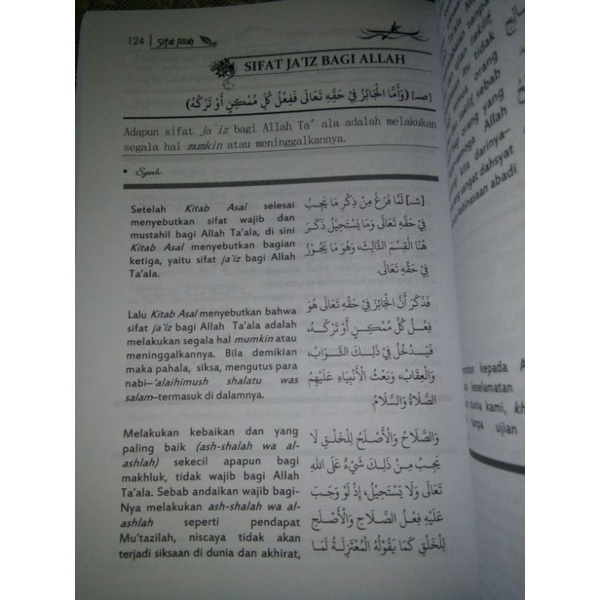 124 | Sifat Allah
SIFAT JA'IZ BAGI ALLAH
[صـ] (وَأَمَّا الْجَائِزُ فِيْ حَقِّهِ تَعَالَى فَفِعْلُ كُلِّ مُمْكِنٍ أَوْ تَرْكُهُ)
Adapun sifat ja`iz bagi Allah Ta'ala adalah melakukan
segala hal mumkin atau meninggalkannya.
Syarh
Setelah Kitab Asal selesai
menyebutkan sifat wajib dan
mustahil bagi Allah Ta'ala, di sini
Kitab Asal menyebutkan bagian
ketiga, yaitu sifat ja'iz bagi Allah
Ta'ala.
[شـ] لَمَّا فَرَغَ مِنْ ذِكْرِ مَا يَجِبُ
فِيْ حَقِّهِ تَعَالَى وَمَا يَسْتَحِيْلُ ذَكَرَ
هُنَا الْقِسْمَ الثَّالِثَ، وَهُوَ مَا يَجُوْزُ
فِيْ حَقِّهِ تَعَالَى.
Lalu Kitab Asal menyebutkan bahwa
sifat ja'iz bagi Allah Ta'ala adalah
melakukan segala hal mumkin atau
meninggalkannya. Bila demikian
maka pahala, siksa, mengutus para
nabi–'alaihimush shalatu was
salam–termasuk di dalamnya.
فَذَكَرَ أَنَّ الْجَائِزَ فِيْ حَقِّهِ تَعَالَى هُوَ
فِعْلُ كُلِّ مُمْكِنٍ أَوْ تَرْكُهُ،
فَيَدْخُلُ فِيْ ذَلِكَ الثَّوَابُ،
وَالْعِقَابُ، وَبَعْثُ الْأَنْبِيَاءِ عَلَيْهِمُ
الصَّلَاةُ وَالسَّلَامُ.
Melakukan kebaikan dan yang
paling baik (ash-shalah wa al-
ashlah) sekecil apapun bagi
makhluk, tidak wajib bagi Allah
Ta'ala. Sebab andaikan wajib bagi-
Nya melakukan ash-shalah wa al-
ashlah seperti pendapat
Mu'tazilah, niscaya tidak akan
terjadi siksaan di dunia dan akhirat,
وَالصَّلَاحُ وَالْأَصْلَحُ لِلْخَلْقِ لَا
يَجِبُ مِنْ ذَلِكَ شَيْءٌ عَلَى اللهِ
تَعَالَى وَلَا يَسْتَحِيْلُ، إِذْ لَوْ وَجَبَ
عَلَيْهِ فِعْلُ الصَّلَاحِ وَالْأَصْلَحِ
لِلْخَلْقِ كَمَا يَقُوْلُهُ الْمُعْتَزِلَةُ لَمَا